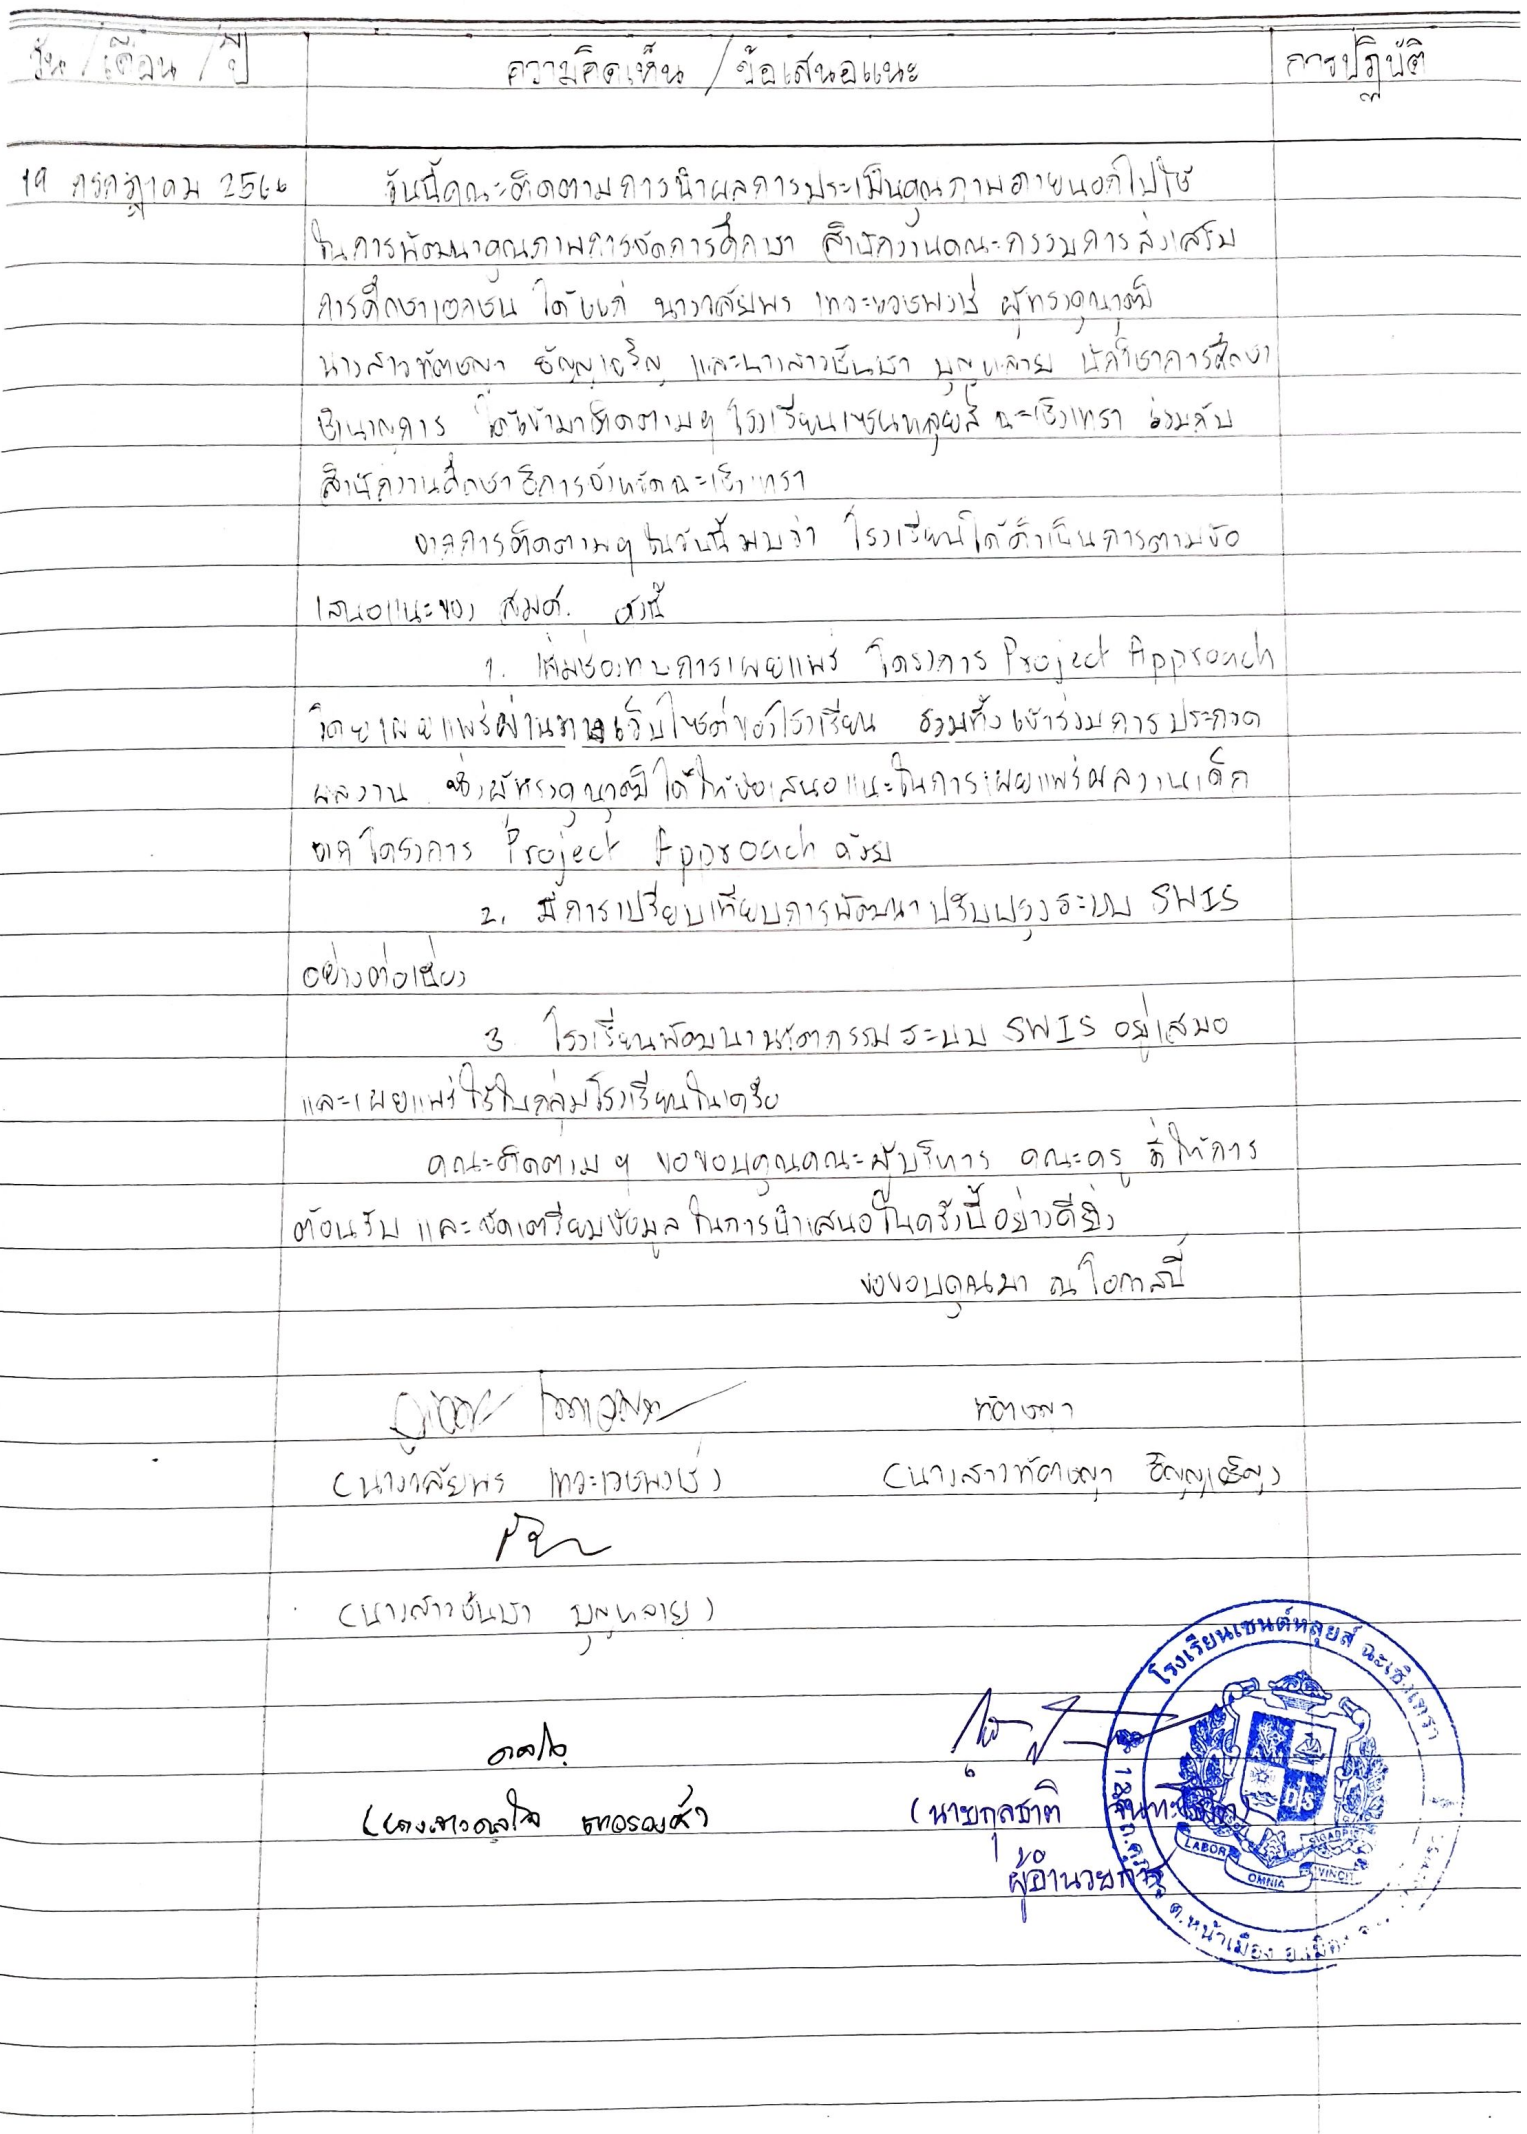 วัน/เดือน/ปี
ความคิดเห็น/ข้อเสนอแนะ
การปฏิบัติ
19 กรกฎาคม 2566
วันนี้คณะติดตามการนำผลการประเมินคุณภาพภายนอกไปใช้
ในการพัฒนาคุณภาพการจัดการศึกษา สำนักงานคณะกรรมการส่งเสริม
การศึกษาเอกชน ได้แก่ นางวลัยพร เทวะเวชพงษ์ ผู้ทรงคุณวุฒิ
นางสาวทัตชญา ธัญญเจริญ และนางสาวชันษา บุญหลาย นักวิชาการศึกษา
ชำนาญการ ได้เข้ามาติดตามฯ โรงเรียนเซนหลุยส์ ฉะเชิงเทรา ร่วมกับ
สำนักงานศึกษาธิการจังหวัดฉะเชิงเทรา
จากการติดตามฯ ในวันนี้ พบว่า โรงเรียนได้ดำเนินการตามข้อ
เสนอแนะของ สมศ. ดังนี้
1. เพิ่มช่องทางการเผยแพร่ โครงการ Project Approach
โดยเผยแพร่ผ่านทางเว็บไซต์ของโรงเรียน รวมทั้งเข้าร่วมการประกวด
ผลงาน ซึ่งผู้ทรงคุณวุฒิได้ให้ข้อเสนอแนะในการเผยแพร่ผลงานเด็ก
จากโครงการ Project Approach ด้วย
2. มีการเปรียบเทียบการพัฒนาปรับปรุงระบบ SWIS
อย่างต่อเนื่อง
3. โรงเรียนพัฒนานวัตกรรมระบบ SWIS อยู่เสมอ
และเผยแพร่ใช้ในกลุ่มโรงเรียนในเครือ
คณะติดตามฯ ขอขอบคุณคณะผู้บริหาร คณะครู ที่ให้การ
ต้อนรับ และจัดเตรียมข้อมูลในการนำเสนอในครั้งนี้อย่างดียิ่ง
ขอขอบคุณมา ณ โอกาสนี้
ทัตชญา
(นางวลัยพร เทวะเวชพงษ์)
(นางสาวทัตชญา ธัญญเจริญ)
(นางสาวชันษา บุญหลาย)
ดลใจ
(นางสาวดลใจ ถาวรวงศ์)
(นายกุลชาติ จันทะ
ผู้อำนวยการ
โรงเรียนเซนต์หลุยส์ ฉะเชิงเทรา
LABOR OMNIA VINCIT
ต.หน้าเมือง อ.เมือง